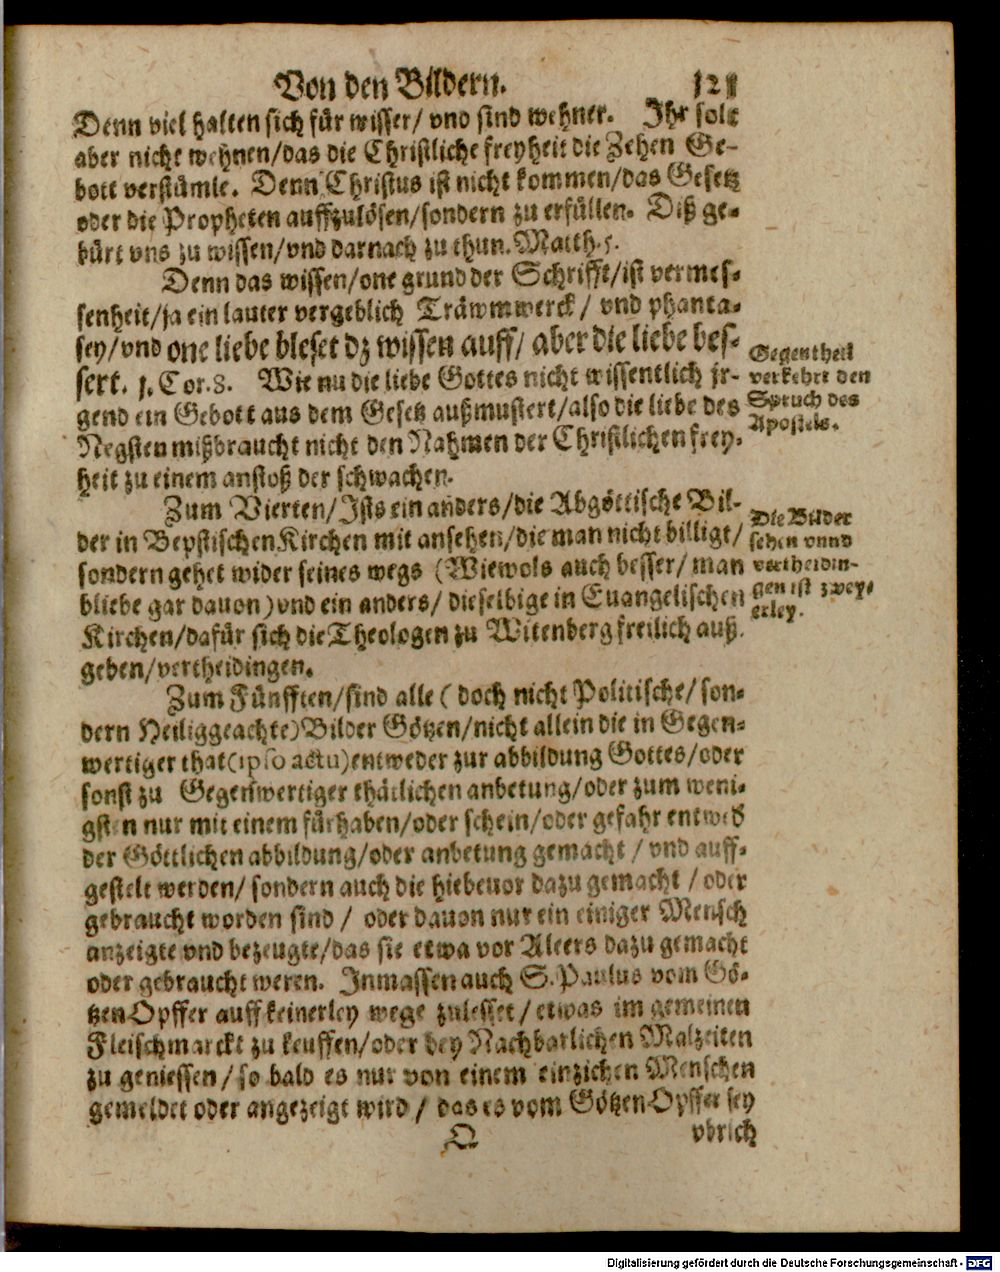 Von den Bildern. 121
Denn viel halten sich für wisser/ vnd sind wehner. Ihr solt
aber nicht wehnen/das die Christliche freyheit die Zehen Ge-
bott verstümle. Denn Christus ist nicht kommen/das Gesetz
oder die Propheten auffzulösen/sondern zu erfüllen. Diß ge-
bürt vns zu wissen/vnd darnach zu thun. Matth. 5.
Denn das wissen/one grund der Schrifft/ist vermes-
senheit/ja ein lauter vergeblich Träwmwerck/ vnd phanta-
sey/vnd one liebe bleset dz wissen auff/ aber die liebe bes-
sert. 1. Cor. 8. Wie nu die liebe Gottes nicht wissentlich jr-
gend ein Gebott aus dem Gesetz außmustert/also die liebe des
Negsten mißbraucht nicht den Nahmen der Christlichen frey-
heit zu einem anstoß der schwachen.
Gegentheil
verkehrt den
Spruch des
Apostels.
Zum Vierten/Ists ein anders/die Abgöttische Bil-
der in Bepstischen Kirchen mit ansehen/die man nicht billigt/
sondern gehet wider seines wegs (Wiewols auch besser/ man
bliebe gar dauon) vnd ein anders/ dieselbige in Euangelischen
Kirchen/dafür sich die Theologen zu Witenberg freilich auß
geben/vertheidingen.
Die Bilder
sehen vnnd
vertheidin-
gen ist zwey-
erley.
Zum Fünfften/sind alle ( doch nicht Politische/ son-
dern Heiliggeachte) Bilder Götzen/nicht allein die in Gegen-
wertiger that (ipso actu) entweder zur abbildung Gottes/oder
sonst zu Gegenwertiger thätlichen anbetung/oder zum weni-
gsten nur mit einem fürhaben/oder schein/oder gefahr entwed
der Göttlichen abbildung/oder anbetung gemacht / vnd auff-
gestelt werden/ sondern auch die hiebeuor dazu gemacht / oder
gebraucht worden sind / oder dauon nur ein einiger Mensch
anzeigte vnd bezeugte/das sie etwa vor Alters dazu gemacht
oder gebraucht weren. Inmassen auch S. Paulus vom Gö-
tzen Opffer auff keinerley wege zulesset / etwas im gemeinen
Fleischmarckt zu keuffen/oder bey Nachbarlichen Malzeiten
zu geniessen / so bald es nur von einem einzichen Menschen
gemeldet oder angezeigt wird / das es vom Götzen Opffer sey
Q vbrich
Digitalisierung gefördert durch die Deutsche Forschungsgemeinschaft - DFG